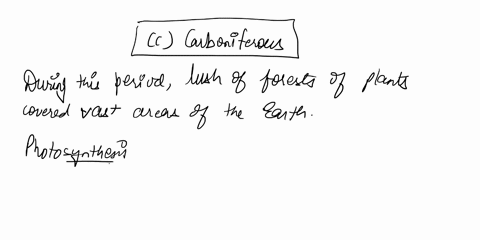 (c) Carboniferous
During this period, lush of forests of plants
covered vast areas of the Earth.
Photosynthesi